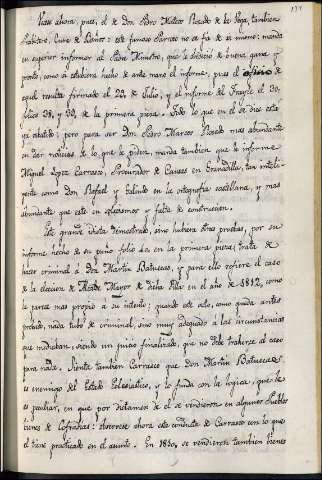 Viene ahora, pues, el de Don Pedro Mateos Rosado de la Vega, tambien
Presbitero, Cura de Bienvr: este famoso Parroco no se fia de si mismo: manda
en superior informar al Padre Ministro, que lo decidió de buena gana, y
pronto, como si estubiera hecho de ante mano el informe, pues el oficio de
aquel resulta firmado el 22 de Julio, y el informe del Frayle el 30,
folios 38, y 39, de la primera pieza. Todo lo que en el se dice está
ya abatido; pero para ser Don Pedro Marcos Rosado mas abundante
en dar noticias de lo que le piden, manda tambien que le informe
Miguel Lopez Carrasco, Procurador de Causas en Granadilla, tan inteli-
gente como Don Rafael y Galindo en la ortografia castellana, y mas
abundante que este en solecismos y falta de construccion.
Este grande dieta demostrado, sino hubiera otras pruebas, por su
informe hecho de su puño folio 40 en la primera pieza; trata de
hacer criminal á Don Martin Batuecas, y para ello refiere el caso
de la eleccion de Alcalde Mayor de dicha Villa en el año de 1812, como
le parece mas propio a su intento; quando este solo, como queda antes
probado, nada tubo de criminal, sino muy adequado á las circunstancias
que mediaban, siendo un juicio finalizado, que no debe traherse al caso
para nada. Sienta tambien Carrasco que Don Martin Batuecas
es enemigo del Estado Eclesiastico, y lo funda con la logica, que le
es peculiar, en que por dictamen de el se vendieron en algunos Pueblos
bienes de Cofradias: observese ahora este conducto de Carrasco con lo que
el tiene practicado en el asunto. En 1810, se vendieron tambien bienes